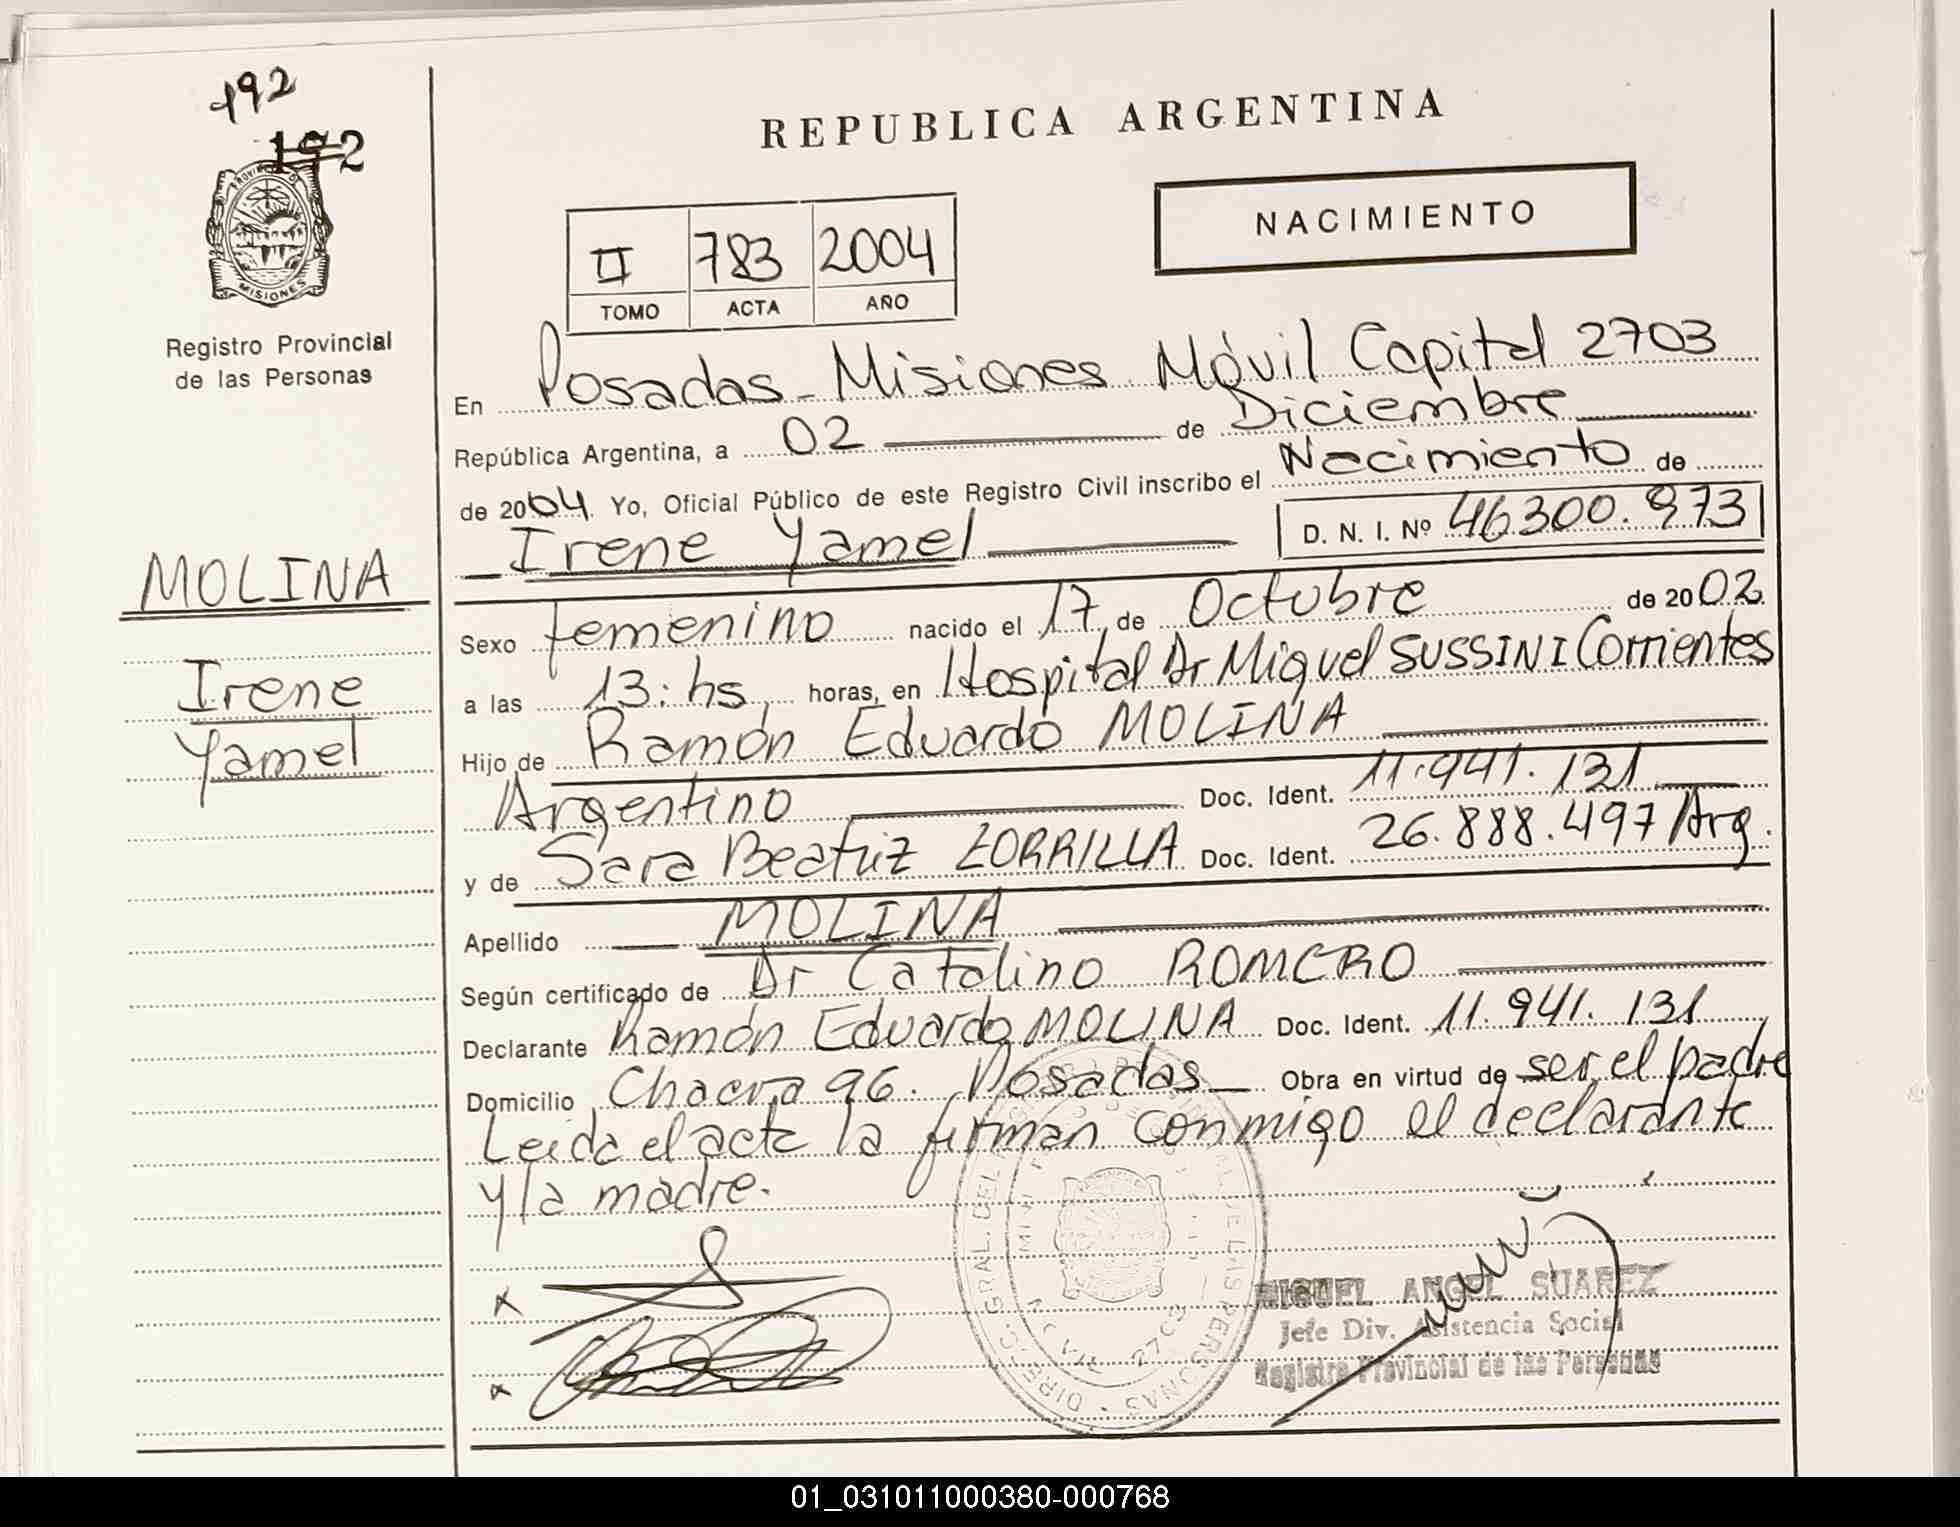 192
172
PROVINCIA DE
MISIONES
Registro Provincial
de las Personas
MOLINA
Irene
Yamel
REPUBLICA ARGENTINA
NACIMIENTO
II 783 2004
TOMO ACTA AÑO
En Posadas - Misiones Móvil Capital 2703
República Argentina, a 02 de Diciembre
de 2004. Yo, Oficial Público de este Registro Civil inscribo el Nacimiento de
Irene Yamel D. N. I. Nº 46.300.973
Sexo femenino nacido el 17 de Octubre de 2002
a las 13:hs horas, en Hospital Dr Miguel SUSSINI Corrientes
Hijo de Ramón Eduardo MOLINA
Argentino Doc. Ident. 11.941.131
y de Sara Beatriz ZORRILLA Doc. Ident. 26.888.497 Arg.
Apellido MOLINA
Según certificado de Dr Catalino ROMERO
Declarante Ramón Eduardo MOLINA Doc. Ident. 11.941.131
Domicilio Chacra 96. Posadas Obra en virtud de ser el padre
Leída el acta la firman conmigo el declarante
y la madre.
x
x
MIGUEL ANGEL SUAREZ
Jefe Div. Asistencia Social
Registro Provincial de las Personas
01_031011000380-000768